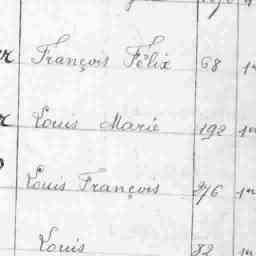 François Félix 68
Louis Marie 192
Louis François 276
Louis 32